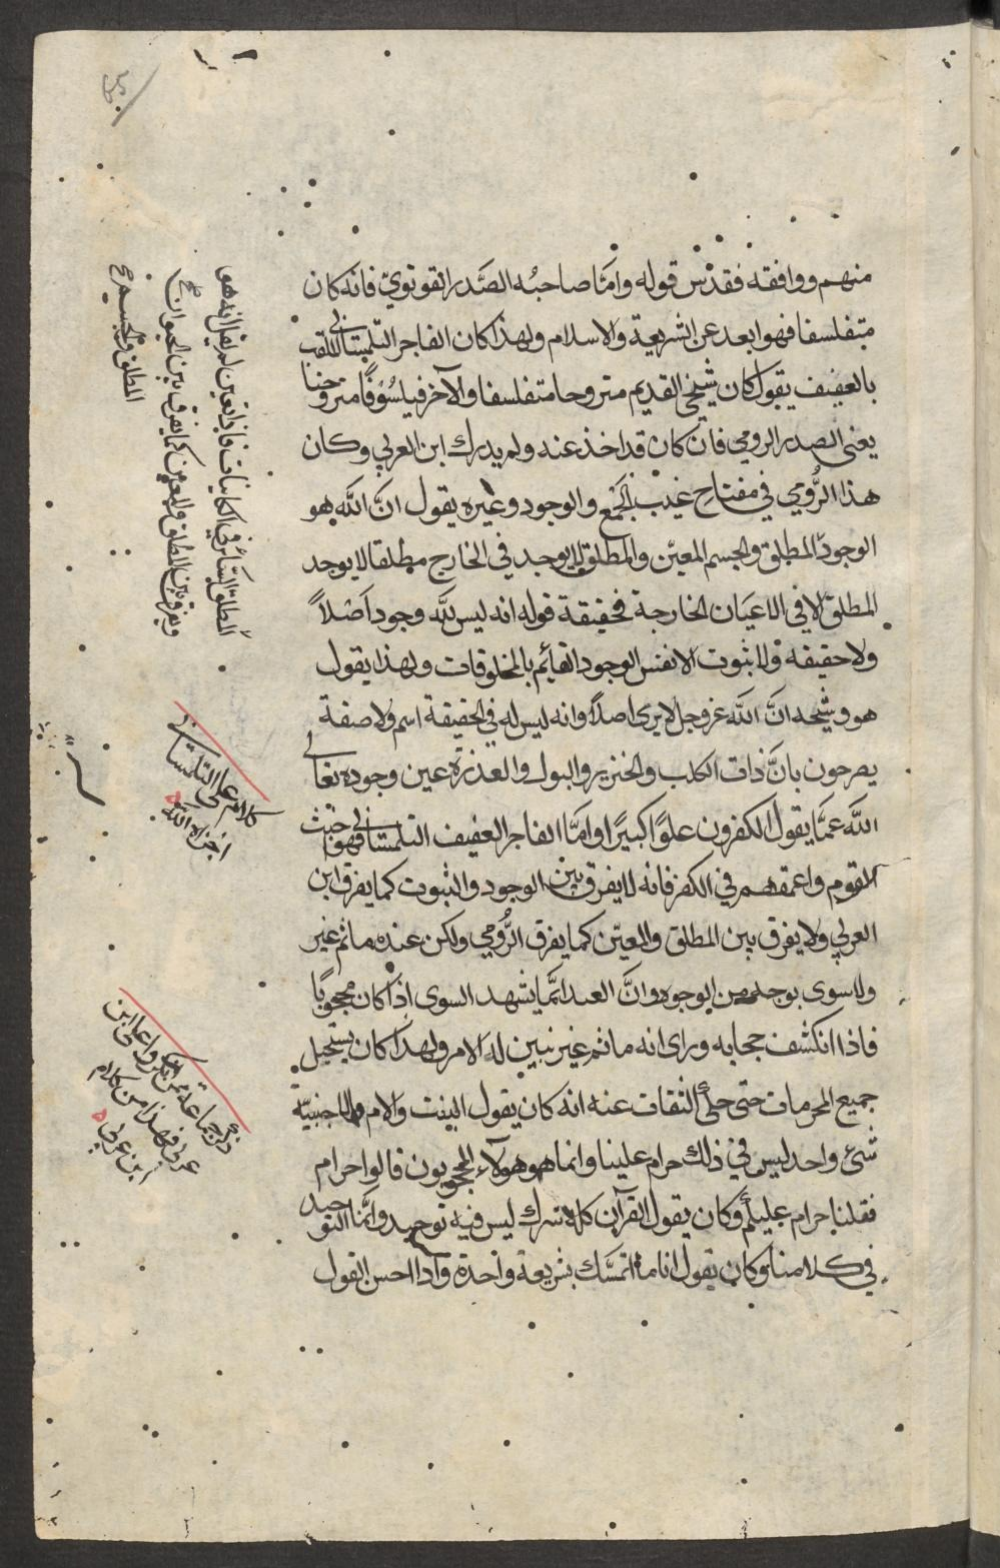 منهم ووافقه فقد تبين قوله وامّا صاحبُه الصّدر القونويّ فانّه كان
متفلسفا فهو ابعد عن الشريعة والاسلام ولهذا كان الفاجر التلمساني الملقب
بالعفيف يقول كان شيخي القديم متروحنا متفلسفا والآخر فيلسُوفًا متروحنا
يعنى الصدر الرومي فان كان قد اخذ عنه ولم يدرك ابن العربي وكان
هذا الرُّومي في مفتاح غيب الجَمع والوجود وغيره يقول انّ اللّه هو
الوجود المطلق والجسم المعيّن والمطلق لا يوجد في الخارج مطلقا لا يوجد
المطلق الا في الاعيَان الخارجة فحقيقة قوله انه ليس للّه وجود اصَلاً
ولا حقيقه ولا ثبوت الا نفس الوجود القائم بالمخلوقات ولهذا يقول
هو وشيخه انّ اللّه عزوجل لا يرى اصلاً وانه ليس له في الحقيقة اسم ولا صفة
يصرحون بانّ ذات الكلب والخنزير والبول والعذرة عين وجوده تعالى
اللّه عمّا يقول الكفرون علوًّا كبيرًا وامّا الفاجر العفيف التلمساني فهو اخبث
القوم واعمقهم في الكفر فانه لا يفرق بين الوجود والثبوت كما يفرق ابن
العربي ولا يفرق بين المطلق والمعيّن كما يفرق الرُّومي ولكن عنده ما ثم غير
ولا سوى بوجه من الوجوه وانّ العبد انّما يشهد السوى اذا كان محجوبًا
فاذا انكشف حجابه وراى انه ما ثم غير تبين له الامر ولهذا كان يستحيل
جميع المحرمات حتى حكى الثقات عنه انه كان يقول البنت والام والاجنبيّة
شئ واحد ليس في ذلك حرام علينا وانما هو هولآء المحجوبون قالوا حرام
فقلنا حرام عليكم وكان يقول القرآن كله شرك ليس فيه توحيد وانّما التوحيد
في كلامنا وكان يقول انا ما اتمسّك بشريعة واحدة واذا احسن القول
المطلق السائر في الكاينات فاذا تعين لم يقال انه هو
ويفرق بين المطلق والمعين كما يفرق بين الحيوان
المطلق والجسم
كلام على التلمساني
اخزاه اللّه
ذكر جماعة
عربي فهذا من كلام
ابن عربي